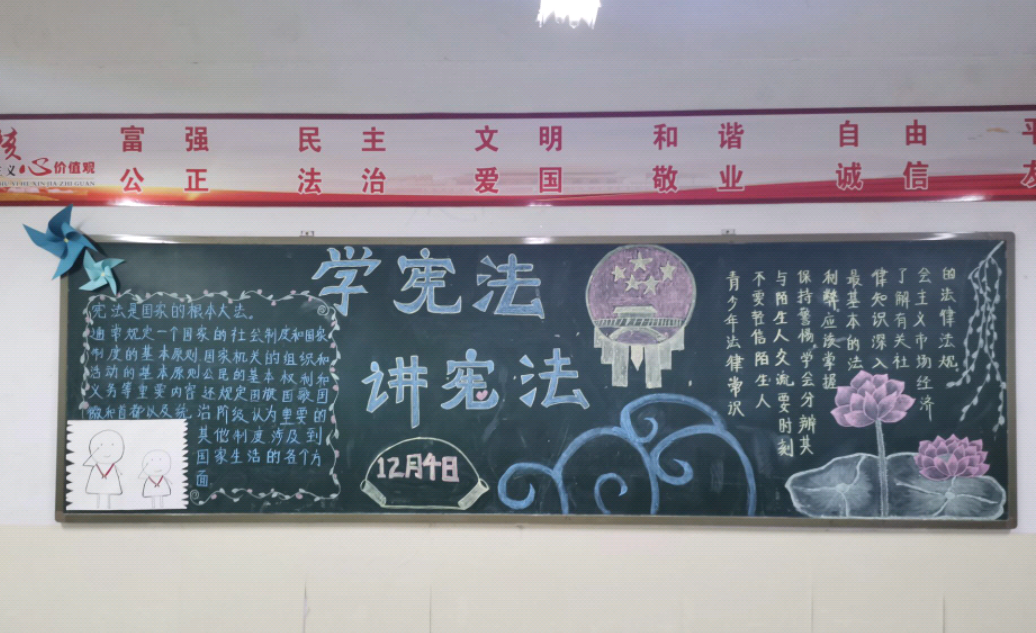 富强 民主 文明 和谐 自由 平
义心价值观
公正 法治 爱国 敬业 诚信 友
学宪法
讲宪法
12月4日
宪法是国家的根本大法。
通常规定一个国家的社会制度和国家
制度的基本原则国家机关的组织和
活动的基本原则公民的基本权利和
义务等重要内容还规定国旗国歌国
徽和首都以及统治阶级认为重要的
其他制度涉及到
国家生活的各个方
面
青少年法律常识
不要轻信陌生人
与陌生人交流要时刻
保持警惕学会分辨其
利弊应该掌握
最基本的法
律知识深入
了解有关社
会主义市场经济
的法律法规。